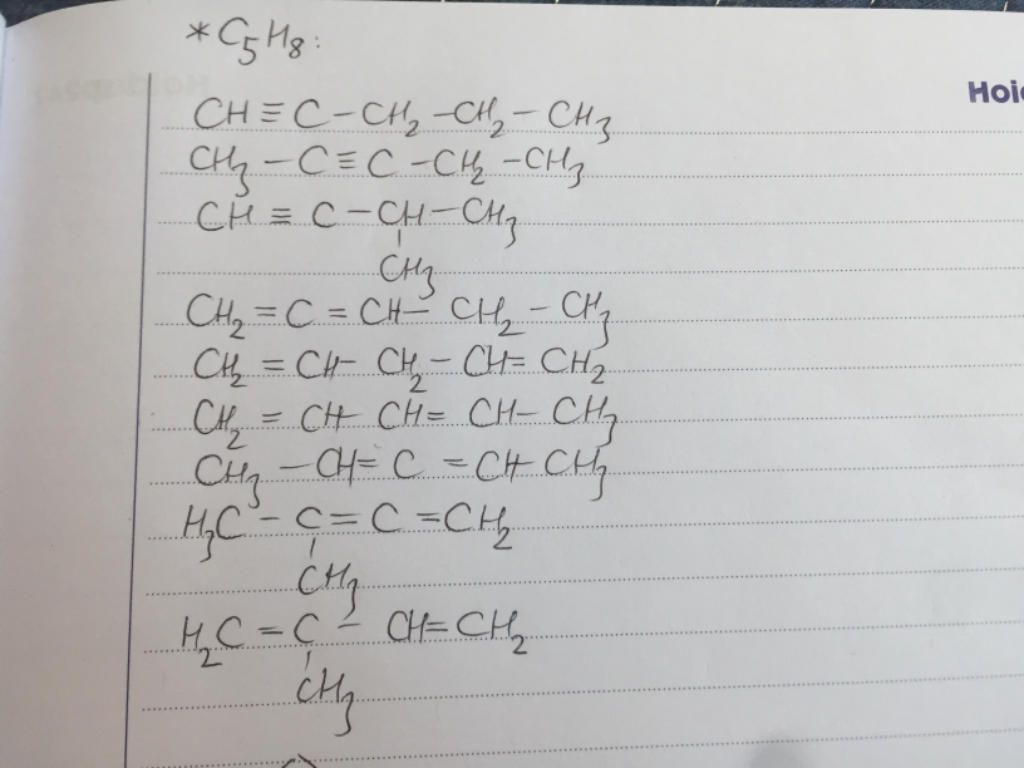 *C₅H₈:
CH≡C-CH₂-CH₂-CH₃
CH₃-C≡C-CH₂-CH₃
CH≡C-CH-CH₃
CH₃
CH₂=C=CH-CH₂-CH₃
CH₂=CH-CH₂-CH=CH₂
CH₂=CH-CH=CH-CH₃
CH₃-CH=C=CH-CH₃
H₃C-C=C=CH₂
CH₃
H₂C=C-CH=CH₂
CH₃